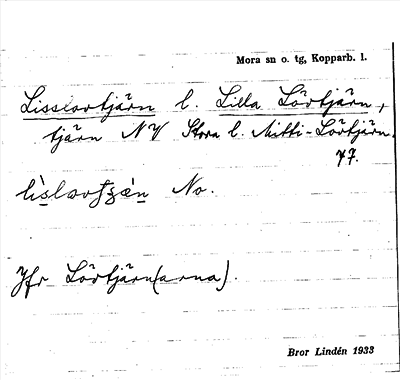 Mora sn o. tg, Kopparb. l.
Lisslortjärn l. Lilla Lörtjärn,
tjärn NV Stora l. Mitti-Lörtjärn.
77.
No.
Jfr Lörtjärn(arna).
Bror Lindén 1933